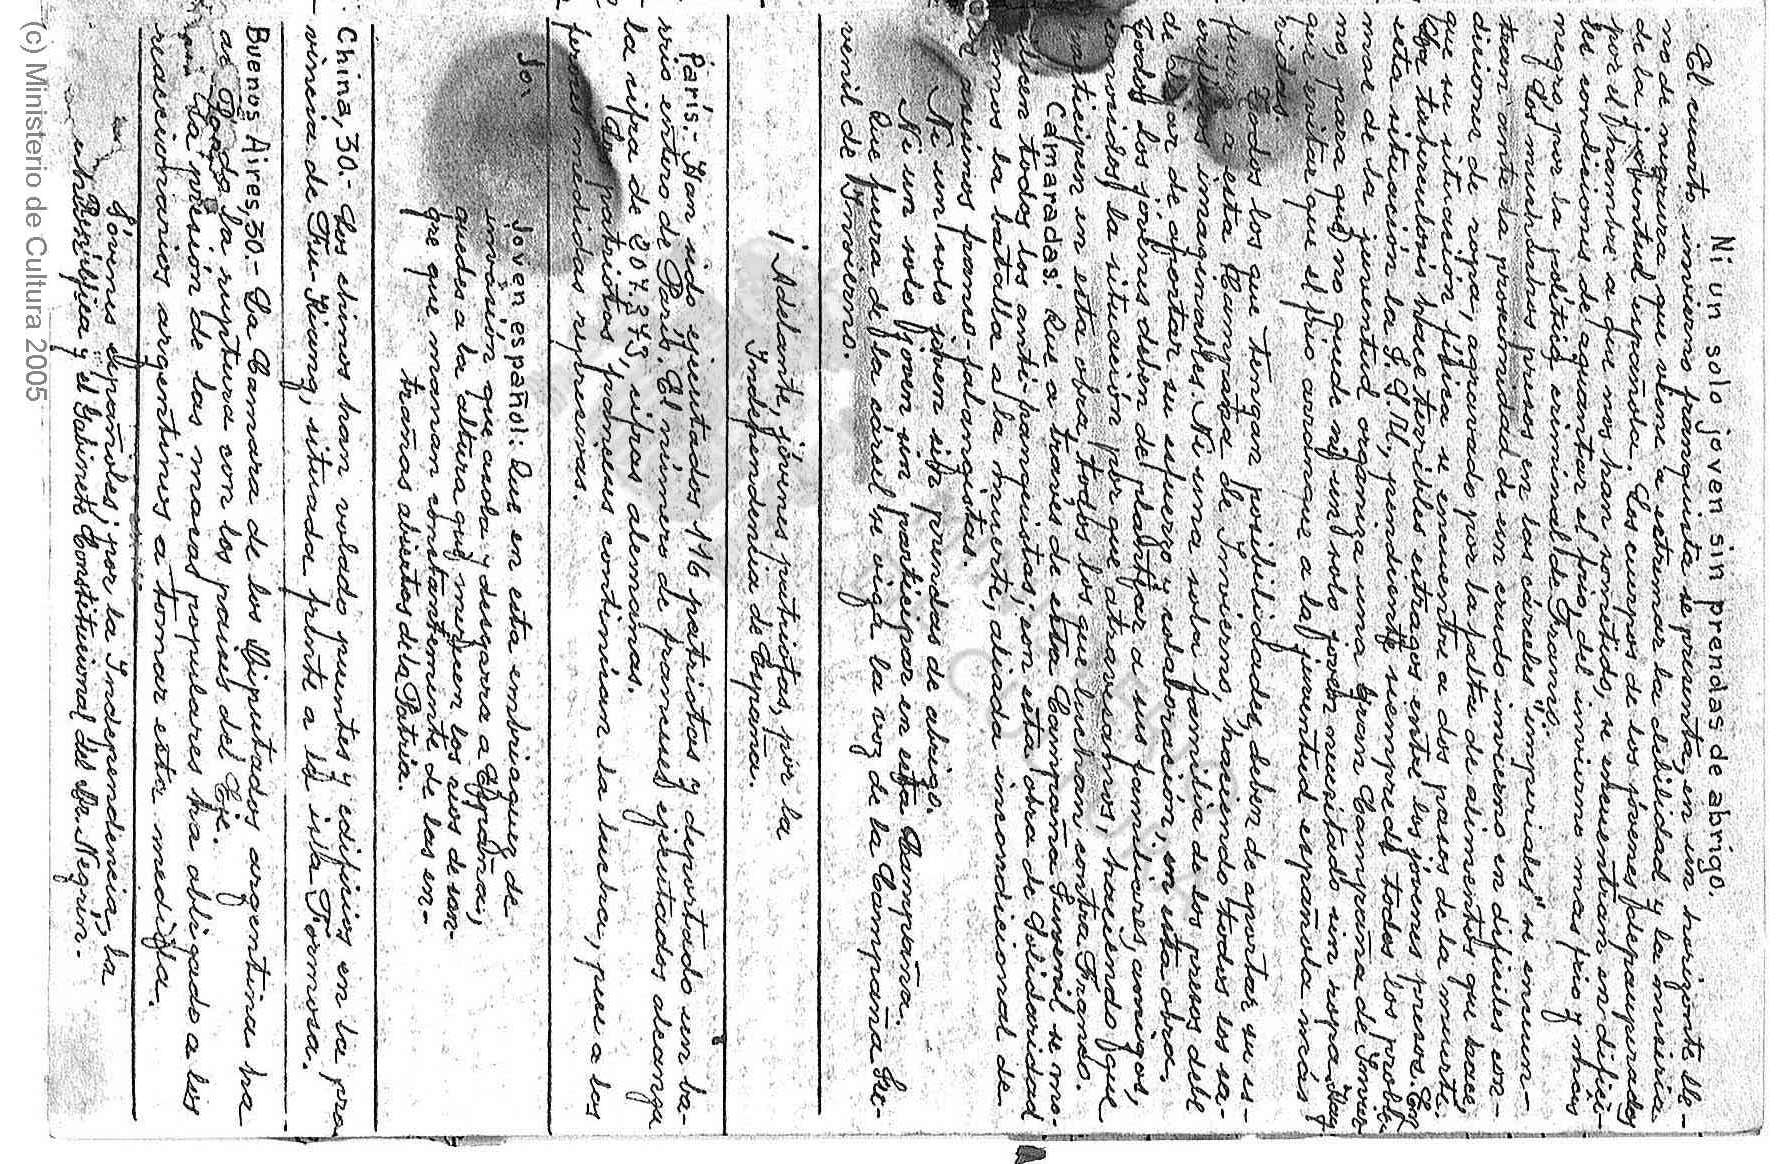 Ni un solo joven sin prendas de abrigo.
El cuarto invierno franquista se presenta, en un horizonte lle-
no de negrura que viene a extremar la debilidad y la miseria
de la juventud española. Los cuerpos de los jóvenes depauperados
por el hambre a que nos han sometido, se encuentran en difíci-
les condiciones de aguantar el frio, del invierno mas frio y mas
negro, por la politica criminal de Franco.
Los muchachos presos en las cárceles "imperiales" se encuen-
tran ante la proximidad de un crudo invierno en dificiles con-
diciones de ropa, agravado por la falta de alimentos que hace,
que su situación física se encuentre a dos pasos de la muerte.
La tuberculosis hace terribles estragos entre los jovenes presos. En
esta situación la J.S.U, pendiente siempre de todos los proble-
mas de la juventud organiza una gran Campaña de Invier
no, para que no quede ni un solo joven necesitado sin ropa. Hay
que evitar que el frio arranque a la juventud española más
vidas.
Todos los que tengan posibilidades, deben de aportar su es-
fuerzo a esta Campaña de Invierno, haciendo todos los sa-
crificios imaginables. Ni una sola familia de los presos debe
de dejar de aportar su esfuerzo y colaboración, en esta obra.
Todos los jóvenes deben de plantear a sus familiares, amigos,
conocidos, la situación por que atravesamos, haciendo que
participen en esta obra, todos los que luchan contra Franco.
Camaradas: Que a través de esta Campaña Juvenil se mo-
vilicen todos los anti-franquistas; con esta obra de Solidaridad
ganemos la batalla a la muerte, aliada incondicional de
los asesinos franco-falangistas.
Ni un solo joven sin prendas de abrigo.
Ni un solo joven sin participar en esta Campaña.
Que fuera de la cárcel se oiga la voz de la Campaña Ju-
venil de Invierno.
¡Adelante, jóvenes patriotas, por la
Independencia de España.
París.- Han sido ejecutados 116 patriotas y deportado un ba-
rrio entero de París. El número de franceses ejecutados alcanza
la cifra de 207.373, cifras alemanas.
Los patriotas franceses continuan la lucha, pese a las
feroces medidas represivas.
Joven español: Que en esta embriaguez de
invasión que asola y desgarra a España,
quedes a la altura que merecen los rios de san-
gre que manan constantemente de las en-
trañas abiertas de la Patria.
China, 30.- Los chinos han volado puentes y edificios en la pro
vincia de Fu-Kieng, situada frente a la isla Formosa.
Buenos Aires, 30.- La Camara de los Diputados argentina ha
acordado la ruptura con los paises del Eje.
La presión de las masas populares ha obligado a los
reaccionarios argentinos a tomar esta medida.
Jóvenes españoles; por la Independencia, la
República y el Gabinete Constitucional del Dr. Negrín.
(c) Ministerio de Cultura 2005